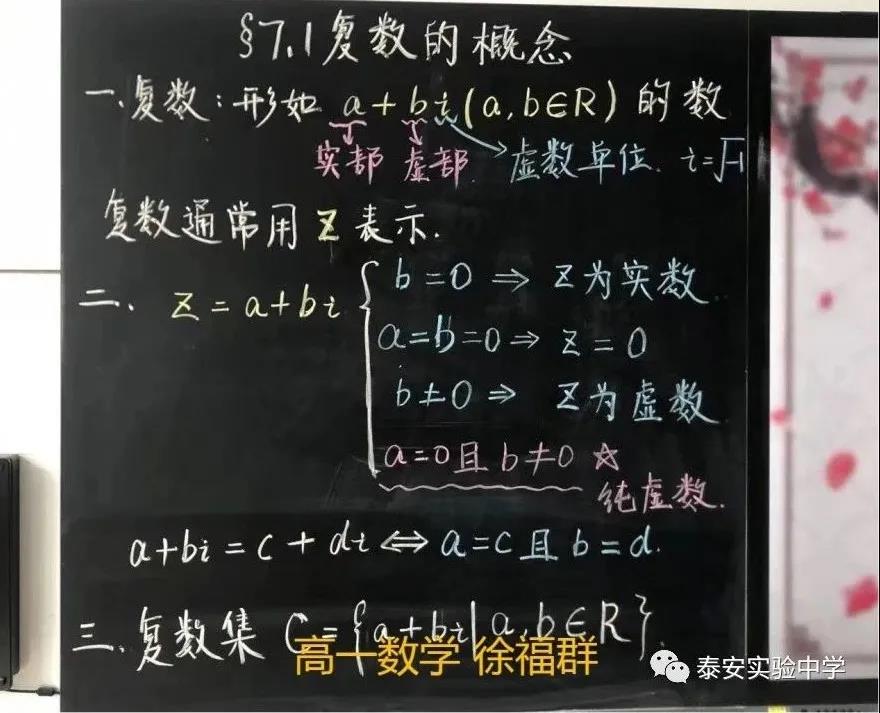 §7.1复数的概念
一.复数:形如 a+bi(a,b∈R)的数
实部 虚部 虚数单位. i=√-1
复数通常用Z表示.
二. Z=a+bi { b=0 ⇒ Z为实数
a=b=0 ⇒ Z=0
b≠0 ⇒ Z为虚数
a=0且b≠0 ☆
纯虚数.
a+bi=c+di ⇔ a=c且b=d.
三.复数集 C={a+bi|a,b∈R}.
高一数学 徐福群
泰安实验中学